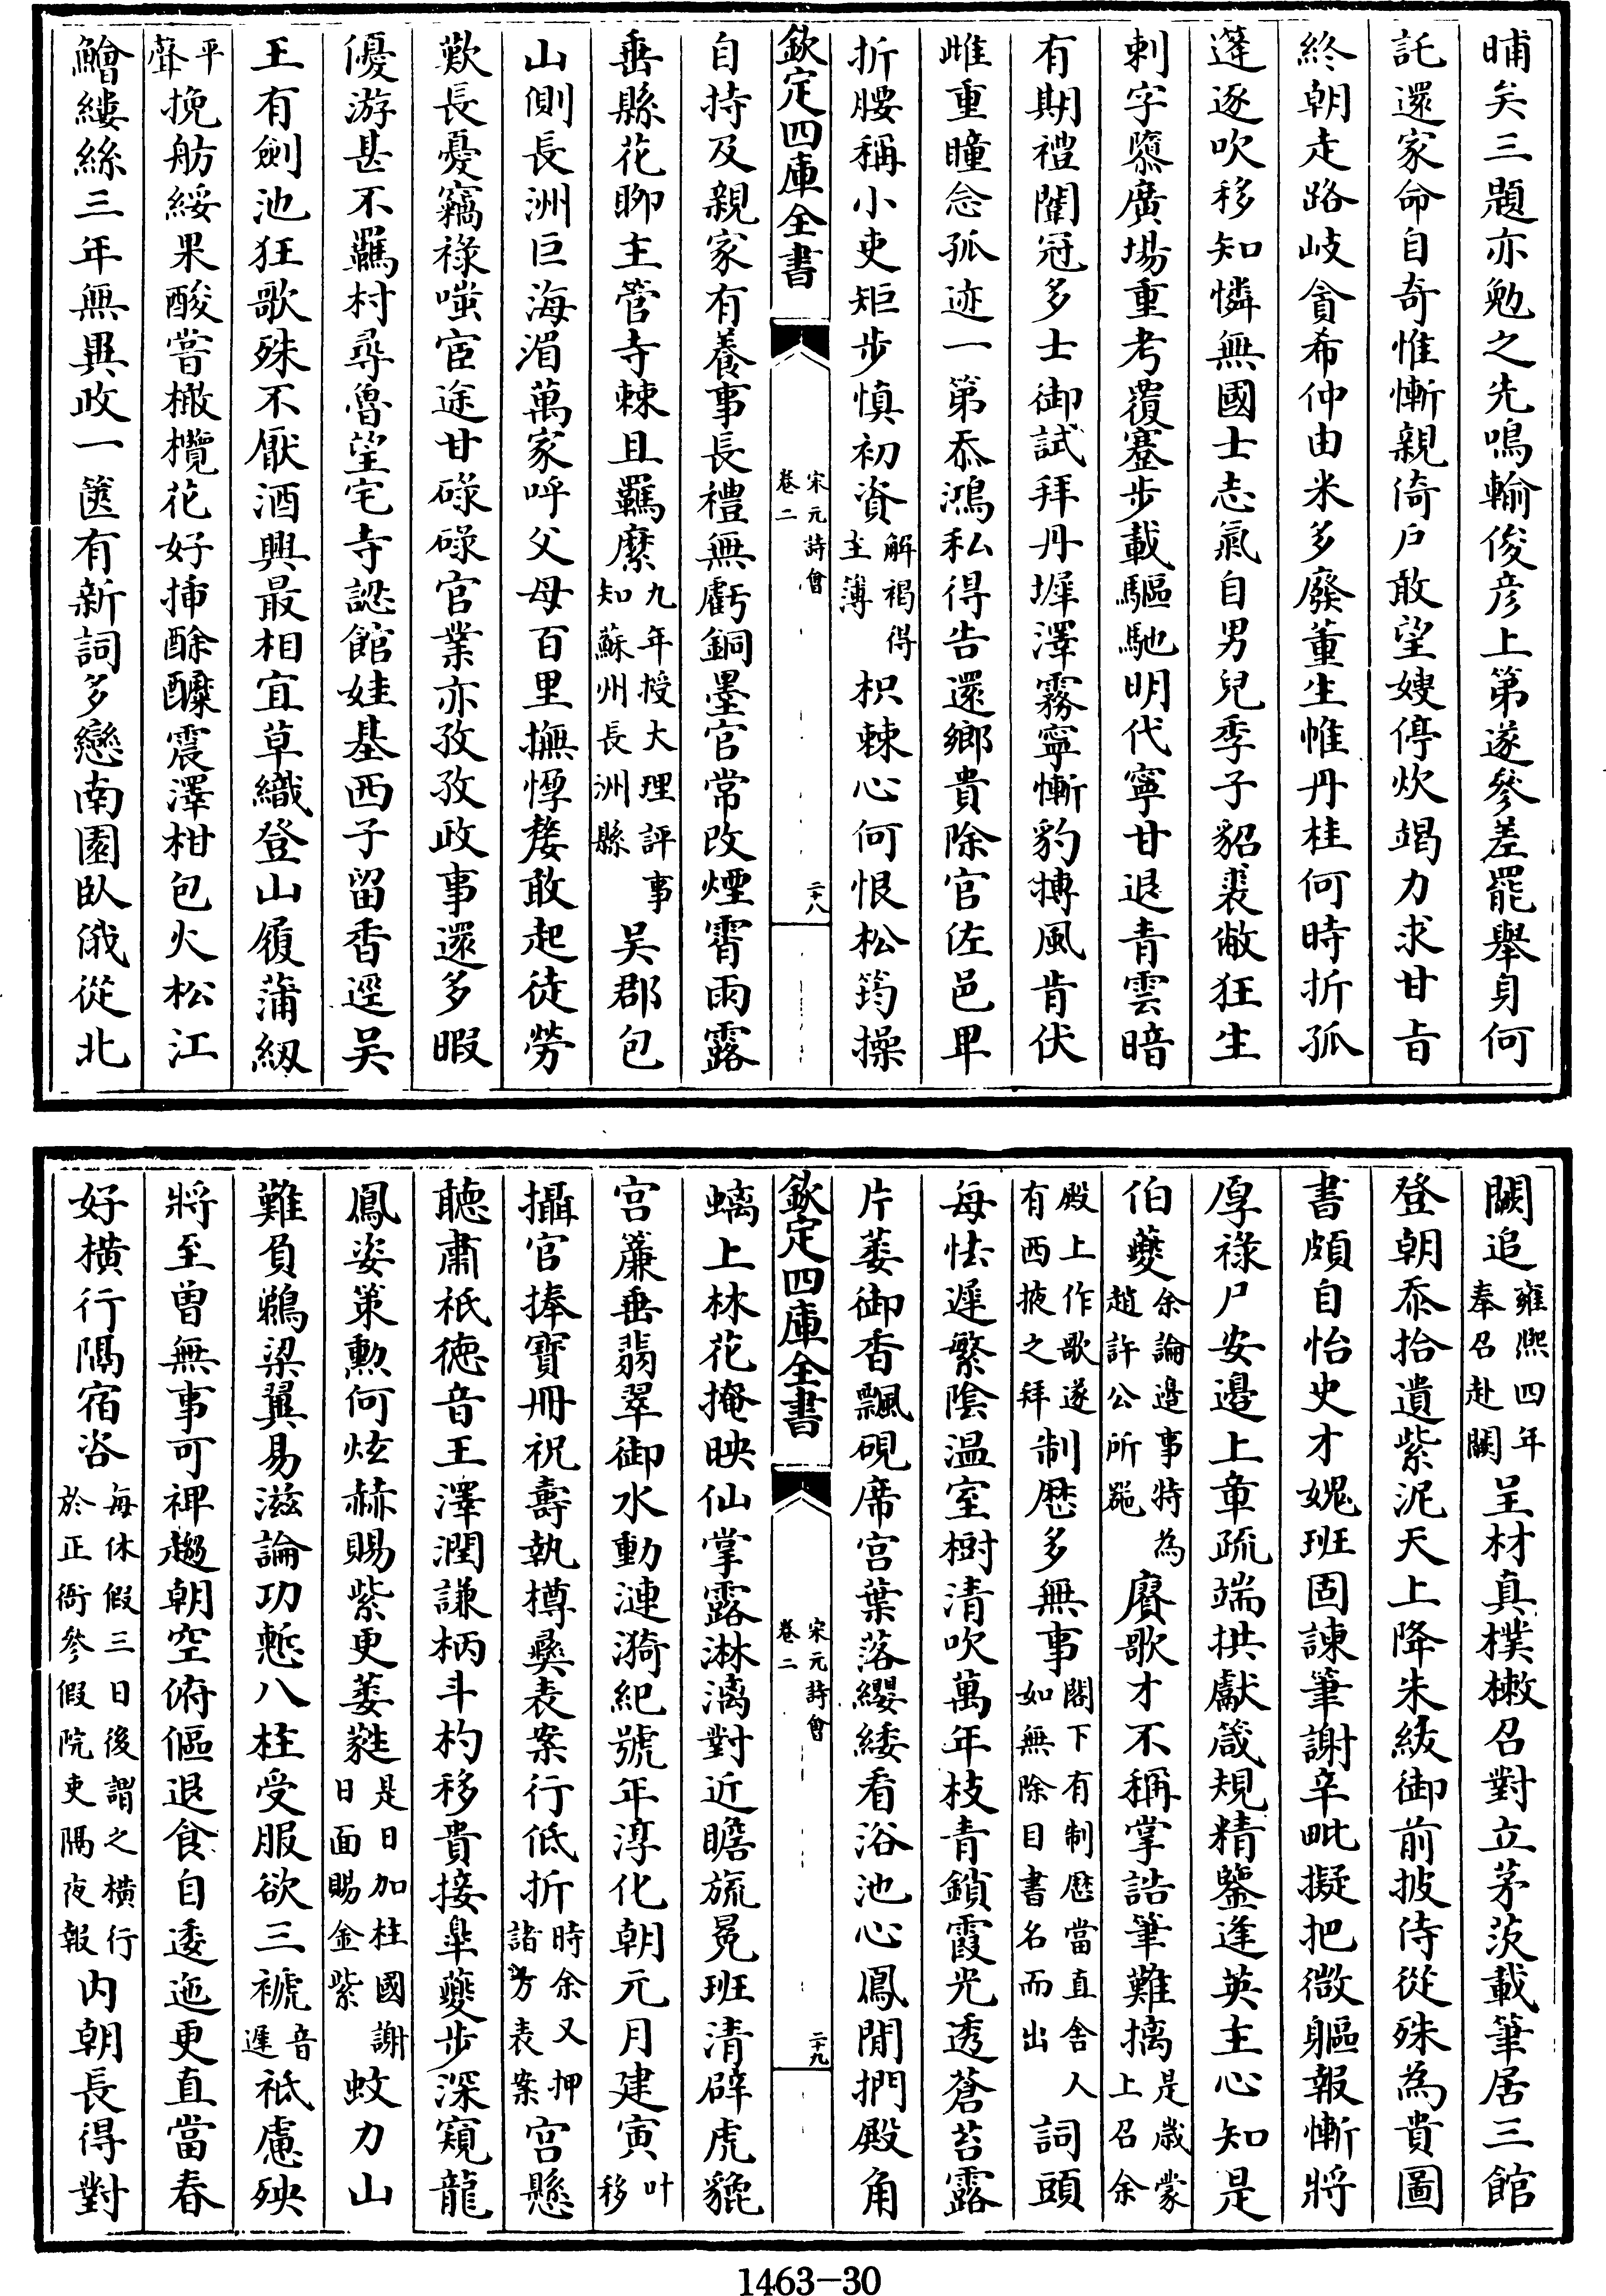 晡矣三題亦勉之先鳴輸俊彦上第遂參差罷舉身何
託還家命自奇惟慚親倚戶敢望嫂停炊竭力求甘旨
終朝走路岐貪希仲由米多廢董生帷丹桂何時折孤
蓬逐吹移知憐無國士志氣自男兒季子貂裘敝狂生
刺字隳廣場重考覆蹇步載驅馳明代寧甘退青雲暗
有期禮闈冠多士御試拜丹墀澤霧寧慚豹摶風肯伏
雌重瞳念孤迹一第忝鴻私得告還鄉貴除官佐邑卑
折腰稱小吏矩步慎初資解褐得主簿枳棘心何恨松筠操
欽定四庫全書 宋元詩會 卷二 二十八
自持及親家有養事長禮無虧銅墨官常改煙霄雨露
垂縣花聊主管寺棘且羈縻九年授大理評事知蘇州長洲縣吳郡包
山側長洲巨海湄萬家呼父母百里撫惸嫠敢起徒勞
歎長憂竊祿嗤宦途甘碌碌官業亦孜孜政事還多暇
優游甚不羈村尋魯望宅寺認館娃基西子留香逕吳
王有劍池狂歌殊不厭酒興最相宜草織登山履蒲紉
平聲挽舫綏果酸嘗橄欖花好插酴醿震澤柑包火松江
鱠縷絲三年無異政一篋有新詞多戀南園臥俄從北
闕追雍熙四年奉召赴闕呈材真樸樕召對立茅茨載筆居三館
登朝忝拾遺紫泥天上降朱紱御前披侍從殊為貴圖
書頗自怡史才媿班固諫筆謝辛毗擬把微軀報慚將
厚祿尸安邊上章疏端拱獻箴規精鑒逢英主心知是
伯夔余論邊事特為趙許公所䟽賡歌才不稱掌誥筆難摛是歲蒙上召余
殿上作歌遂有西掖之拜制歷多無事閣下有制歷當直舍人如無除目書名而出詞頭
每怯遲繁陰温室樹清吹萬年枝青鎖霞光透蒼苔露
片萎御香飄硯席宮葉落纓緌看浴池心鳳閒捫殿角
欽定四庫全書 宋元詩會 卷二 二十九
螭上林花掩映仙掌露淋漓對近瞻旒冕班清辟虎貔
宮簾垂翡翠御水動漣漪紀號年淳化朝元月建寅叶移
攝官捧寶冊祝壽執樽彞表案行低折時余又押諸方表案宮懸
聽肅祇德音王澤潤謙柄斗杓移貴接臯夔步深窺龍
鳳姿策勲何炫赫賜紫更葳蕤是日加柱國謝日面賜金紫蚊力山
難負鵜梁翼易滋論功慙八柱受服欲三褫音遲祗慮殃
將至曾無事可裨趨朝空俯傴退食自逶迤更直當春
好橫行隅宿咨每休假三日後謂之橫行於正衙參假院吏隅夜報内朝長得對
1463-30